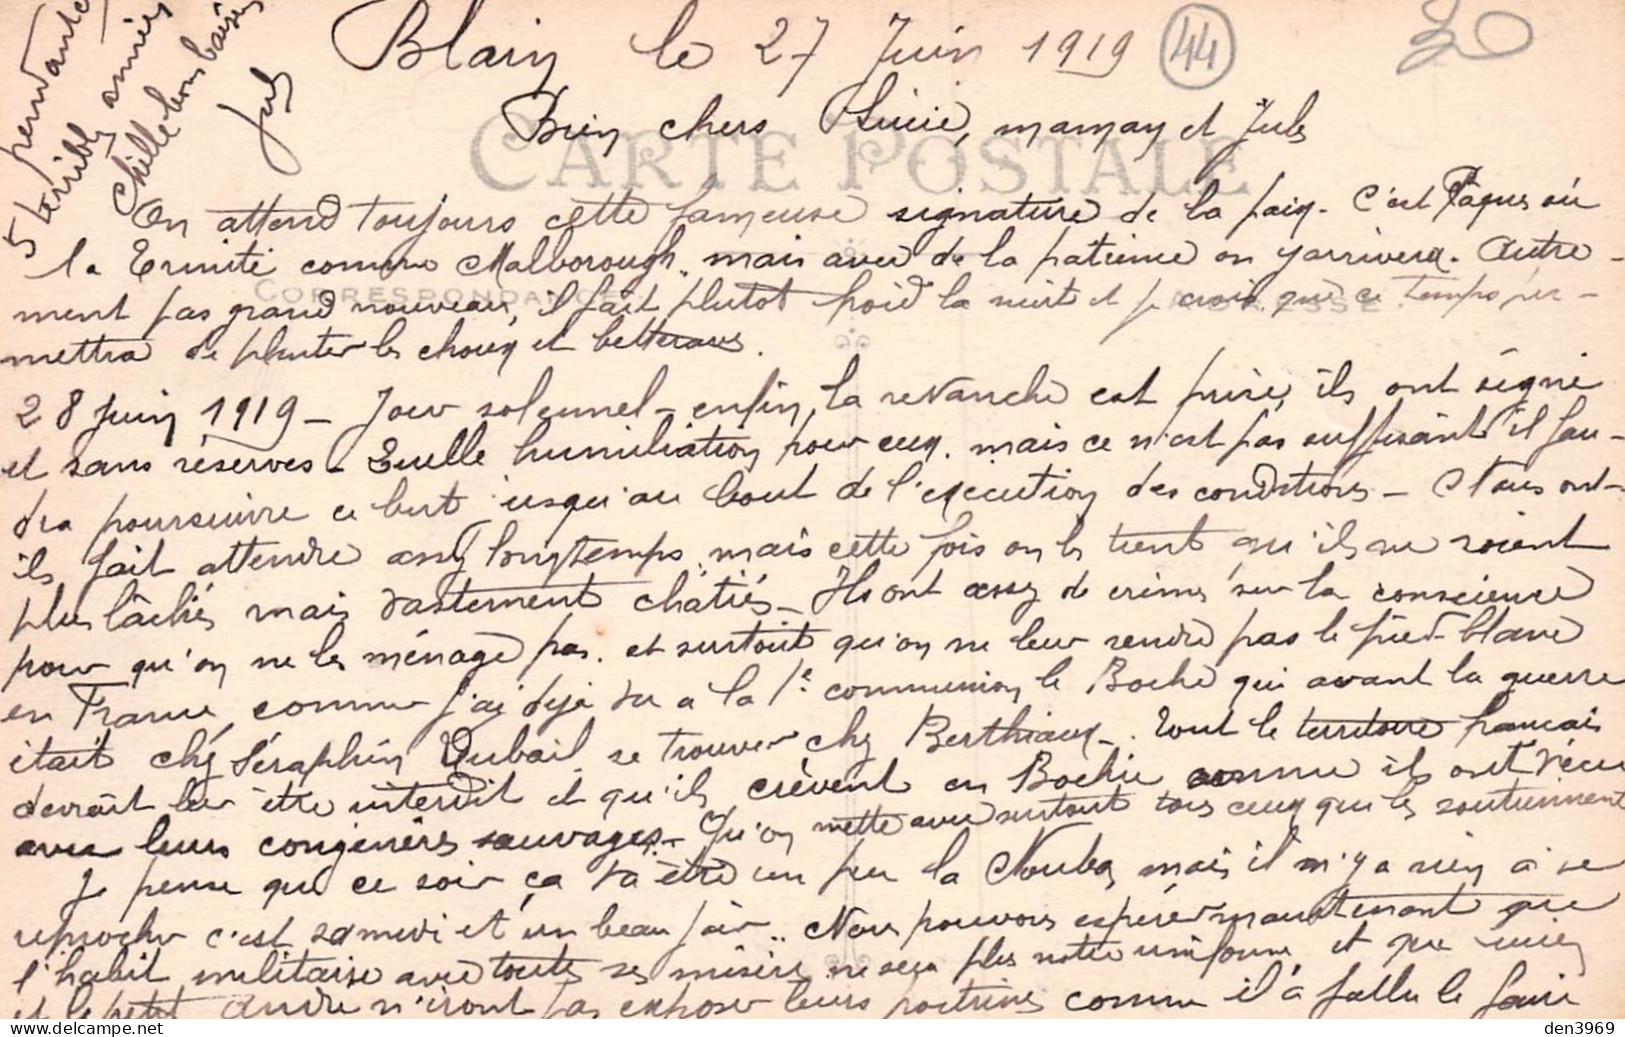 Blain le 27 Juin 1919 44
Bien chers Lucie, maman et Jules
CARTE POSTALE
On attend toujours cette fameuse signature de la paix. C'est Pâques où
la Trinité comme Malborough, mais avec de la patience on y arrivera. Autre-
CORRESPONDANCE
ADRESSE
ment pas grand nouveau, il fait plutot froid la nuit et je crois que ce temps per-
mettra de planter les choux et betteraves.
28 Juin 1919 - Jour solennel - enfin, la revanche est prise, ils ont signé
et sans réserves - Quelle humiliation pour eux. mais ce n'est pas suffisant il fau-
dra poursuivre ce but jusqu'au bout de l'execution des conditions - Nous ont-
ils fait attendre assez longtemps, mais cette fois on les tient qu'ils ne soient
plus lâchés mais vastement châtiés - Ils ont assez de crimes sur la conscience
pour qu'on ne les ménage pas. et surtout qu'on ne leur rende pas le pied blanc
en France, comme j'ai deja vu a la 1e communion le Boche qui avant la guerre
était chez Séraphin Dubail se trouver chez Berthiaux -. Tout le territoire francais
devrait leur être interdit et qu'ils crèvent en Bochie comme ils ont vécu
avec leurs congénères sauvages - Qu'on mette avec surtout tous ceux qui les soutiennent
Je pense que ce soir ça va être un peu la Nouba, mais il n'y a rien à se
reprocher c'est samedi et un beau jour.. Nous pouvons espérer maintenant que
l'habit militaire avec toutes ses misères ne sera plus notre uniforme et que
et le petit André n'iront pas exposer leurs poitrines comme il a fallu le faire
pendant
5 terribles années
Mille bons baisers
Jules
den3969